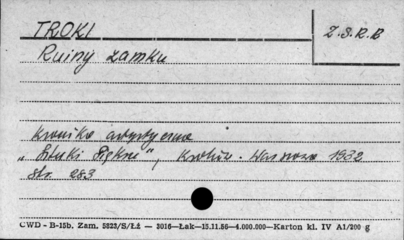 TROKI
Z.S.R.R
Ruiny zamku
Kronika artystyczna
„Sztuki Piękne”, Kraków - Warszawa 1932
str. 283
CWD - B-15b. Zam. 5823/S/Łź — 3016—Łak—15.11.56—4.000.000—Karton kl. IV A1/200 g